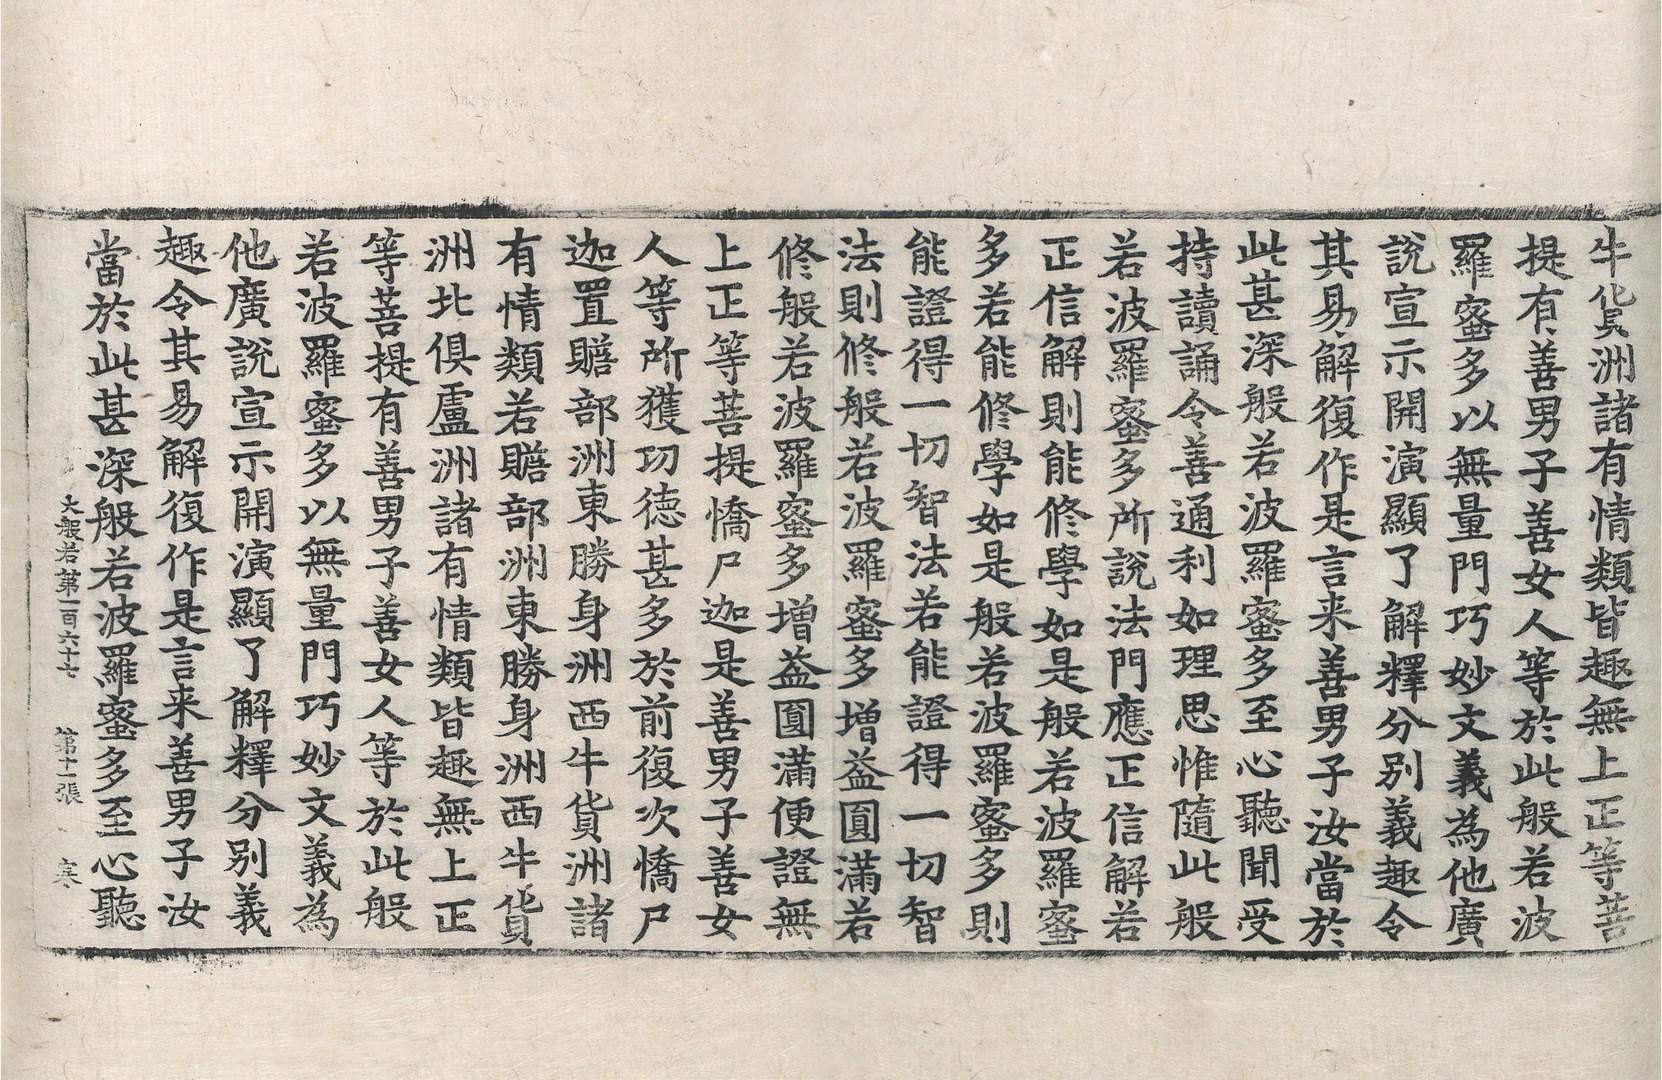 牛貨洲諸有情類皆趣無上正等菩
提有善男子善女人等於此般若波
羅蜜多以無量門巧妙文義為他廣
說宣示開演顯了解釋分別義趣令
其易解復作是言来善男子汝當於
此甚深般若波羅蜜多至心聽聞受
持讀誦令善通利如理思惟隨此般
若波羅蜜多所說法門應正信解若
正信解則能修學如是般若波羅蜜
多若能修學如是般若波羅蜜多則
能證得一切智法若能證得一切智
法則修般若波羅蜜多增益圓滿若
修般若波羅蜜多增益圓滿便證無
上正等菩提憍尸迦是善男子善女
人等所獲功德甚多於前復次憍尸
迦置贍部洲東勝身洲西牛貨洲諸
有情類若贍部洲東勝身洲西牛貨
洲北俱盧洲諸有情類皆趣無上正
等菩提有善男子善女人等於此般
若波羅蜜多以無量門巧妙文義為
他廣說宣示開演顯了解釋分別義
趣令其易解復作是言来善男子汝
當於此甚深般若波羅蜜多至心聽
大般若第一百六十七 第十一張 寒